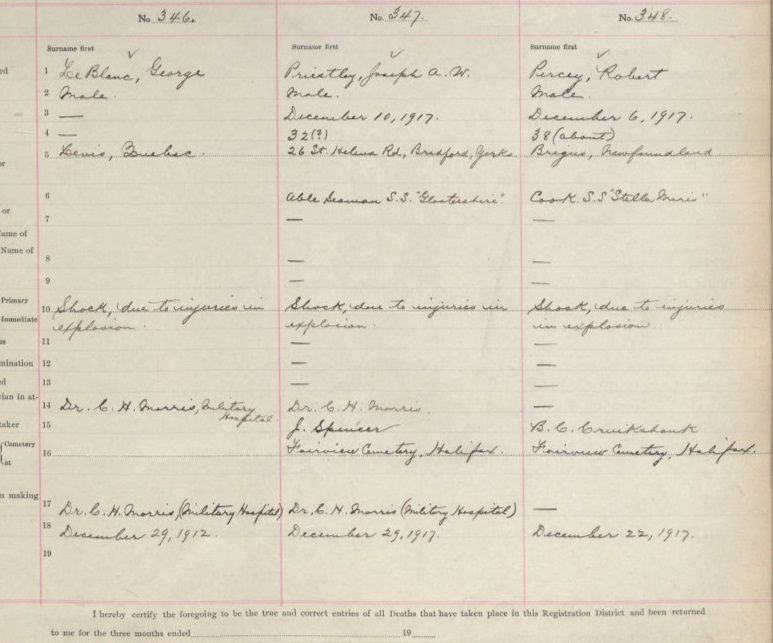 No. 346.
No. 347.
No. 348.
Surname first
Surname first
Surname first
ed
1 LeBlanc, George
Priestley, Joseph A. W.
Percey, Robert
2 Male.
Male.
Male.
3 —
December 10, 1917.
December 6, 1917.
4 —
32(?)
38 (about)
5 Levis, Quebec.
26 St. Helena Rd, Bradford, Yorks.
Brigus, Newfoundland
or
6
Able Seaman S.S. "Glostershire".
Cook. S.S "Stella Maris"
or
7
—
—
ame of
Name of
8
—
—
9
—
—
Primary
10 Shock, due to injuries in
Shock, due to injuries in
Shock, due to injuries
Immediate
explosion.
explosion.
in explosion.
s
11
—
—
mination
12
—
—
ed
13
—
—
ian in at-
14 Dr. C. H. Morris, Military
Hospital.
Dr. C. H. Morris.
—
taker
15
J. Spencer
B. C. Cruikshank
Cemetery
at
16
Fairview Cemetery, Halifax.
Fairview Cemetery, Halifax.
n making
17 Dr. C. H. Morris, (Military Hospital)
Dr. C. H. Morris (Military Hospital)
—
18 December 29, 1912.
December 29, 1917.
December 22, 1917.
19
I hereby certify the foregoing to be the true and correct entries of all Deaths that have taken place in this Registration District and been returned
to me for the three months ended 19